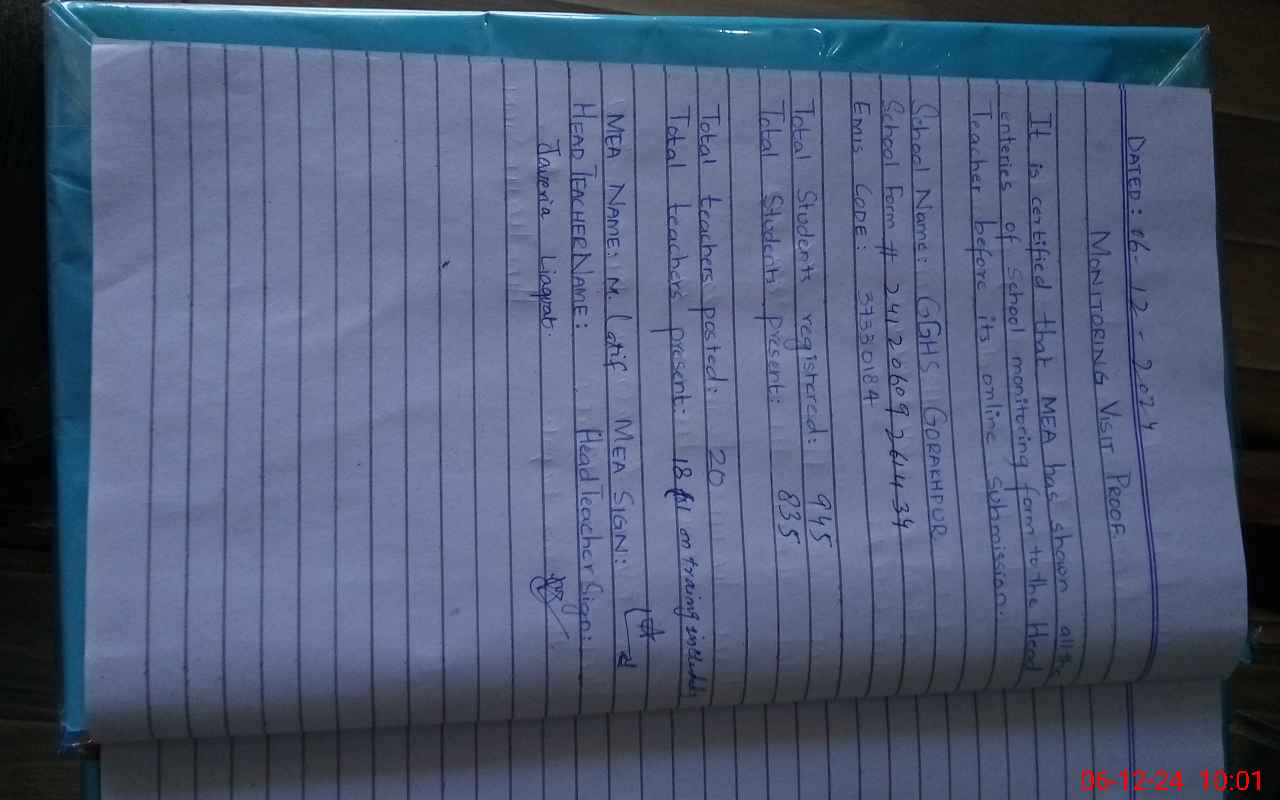 DATED: 06-12-2024
MONITORING VISIT PROOF
It is certified that MEA has shown all the
enteries of school monitoring form to the Head
Teacher before its online submission.
School Name: GGHS GORAKHPUR
School Form # 24120609264434
EMIS CODE: 37330184
Total Students registered: 945
Total Students present: 835
Total teachers posted: 20
Total teachers present: 18 on traing
MEA NAME: M. Latif MEA SIGN:
HEAD TEACHER NAME: Head Teacher Sign:
Javeria Liaqat.
06-12-24 10:01